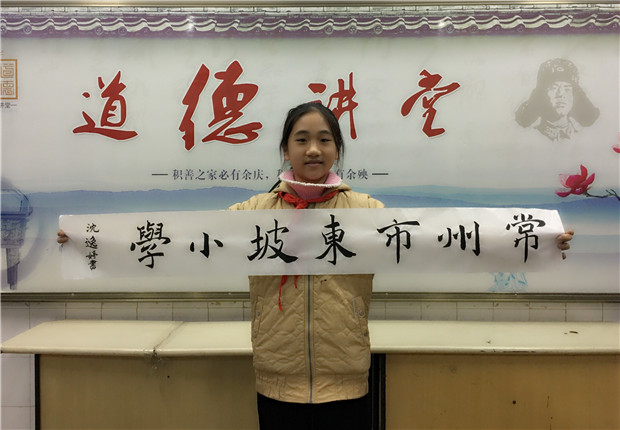 道德讲堂
积善之家必有余庆，
有余殃
常州市東坡小學
沈逸妤書